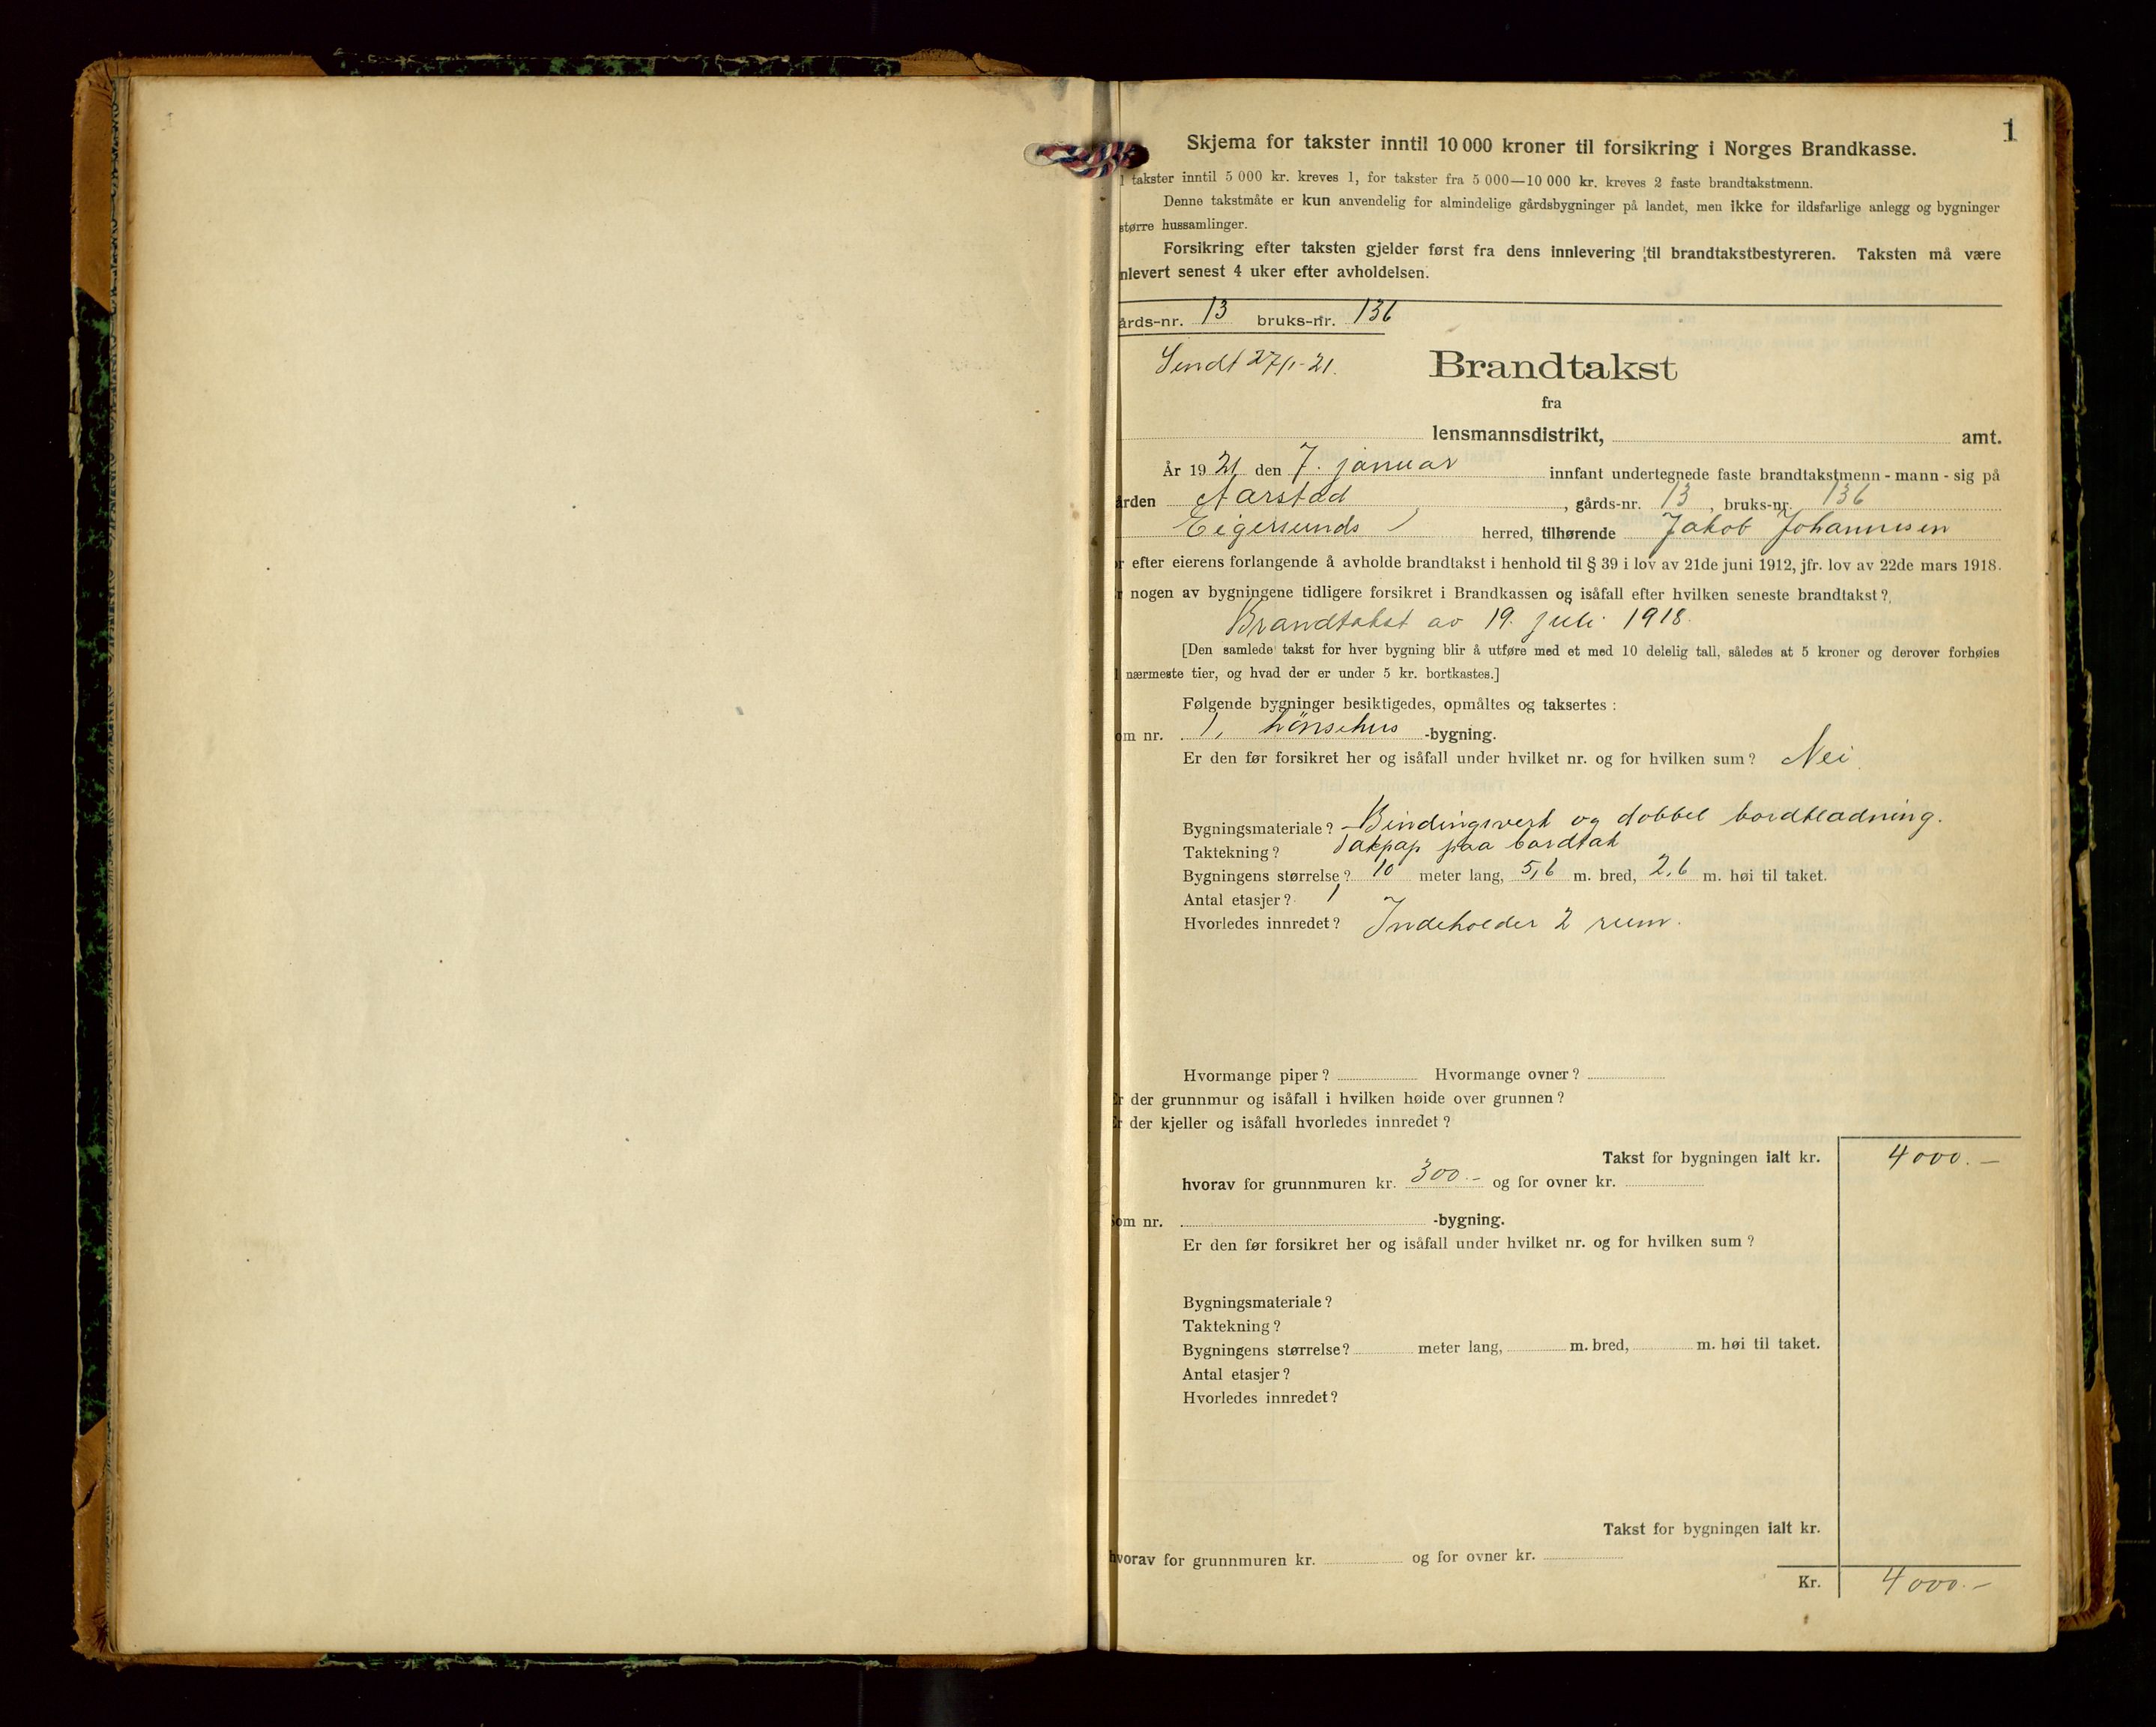 1
Skjema for takster inntil 10 000 kroner til forsikring i Norges Brandkasse.
l takster inntil 5 000 kr. kreves 1, for takster fra 5 000—10 000 kr. kreves 2 faste brandtakstmenn.
Denne takstmåte er kun anvendelig for almindelige gårdsbygninger på landet, men ikke for ildsfarlige anlegg og bygninger
større hussamlinger.
Forsikring efter taksten gjelder først fra dens innlevering til brandtakstbestyreren. Taksten må være
nlevert senest 4 uker efter avholdelsen.
årds-nr. 13 bruks-nr. 136
Sendt 27/1-21.
Brandtakst
fra
lensmannsdistrikt, amt.
År 1921 den 7. januar innfant undertegnede faste brandtakstmenn - mann - sig på
ården Aarstad, gårds-nr. 13, bruks-nr. 136
Eigersunds herred, tilhørende Jakob Johannesen
r efter eierens forlangende å avholde brandtakst i henhold til § 39 i lov av 21de juni 1912, jfr. lov av 22de mars 1918.
r nogen av bygningene tidligere forsikret i Brandkassen og isåfall efter hvilken seneste brandtakst?
Brandtakst av 19. juli 1918.
[Den samlede takst for hver bygning blir å utføre med et med 10 delelig tall, således at 5 kroner og derover forhøies
l nærmeste tier, og hvad der er under 5 kr. bortkastes.]
Følgende bygninger besiktigedes, opmåltes og taksertes :
om nr. 1, hönsehus -bygning.
Er den før forsikret her og isåfall under hvilket nr. og for hvilken sum? Nei.
Bygningsmateriale? Bindingsverk og dobbel bordkladning.
Taktekning? Takpap paa bordtak
Bygningens størrelse? 10 meter lang, 5,6 m. bred, 2,6 m. høi til taket.
Antal etasjer? 1
Hvorledes innredet? Indeholder 2 rum.
Hvormange piper? Hvormange ovner?
Er der grunnmur og isåfall i hvilken høide over grunnen?
Er der kjeller og isåfall hvorledes innredet?
Takst for bygningen ialt kr. 4000.-
hvorav for grunnmuren kr. 300.- og for ovner kr.
Som nr. -bygning.
Er den før forsikret her og isåfall under hvilket nr. og for hvilken sum?
Bygningsmateriale?
Taktekning?
Bygningens størrelse? meter lang, m. bred, m. høi til taket.
Antal etasjer?
Hvorledes innredet?
Takst for bygningen ialt kr.
hvorav for grunnmuren kr. og for ovner kr.
Kr. 4000.-